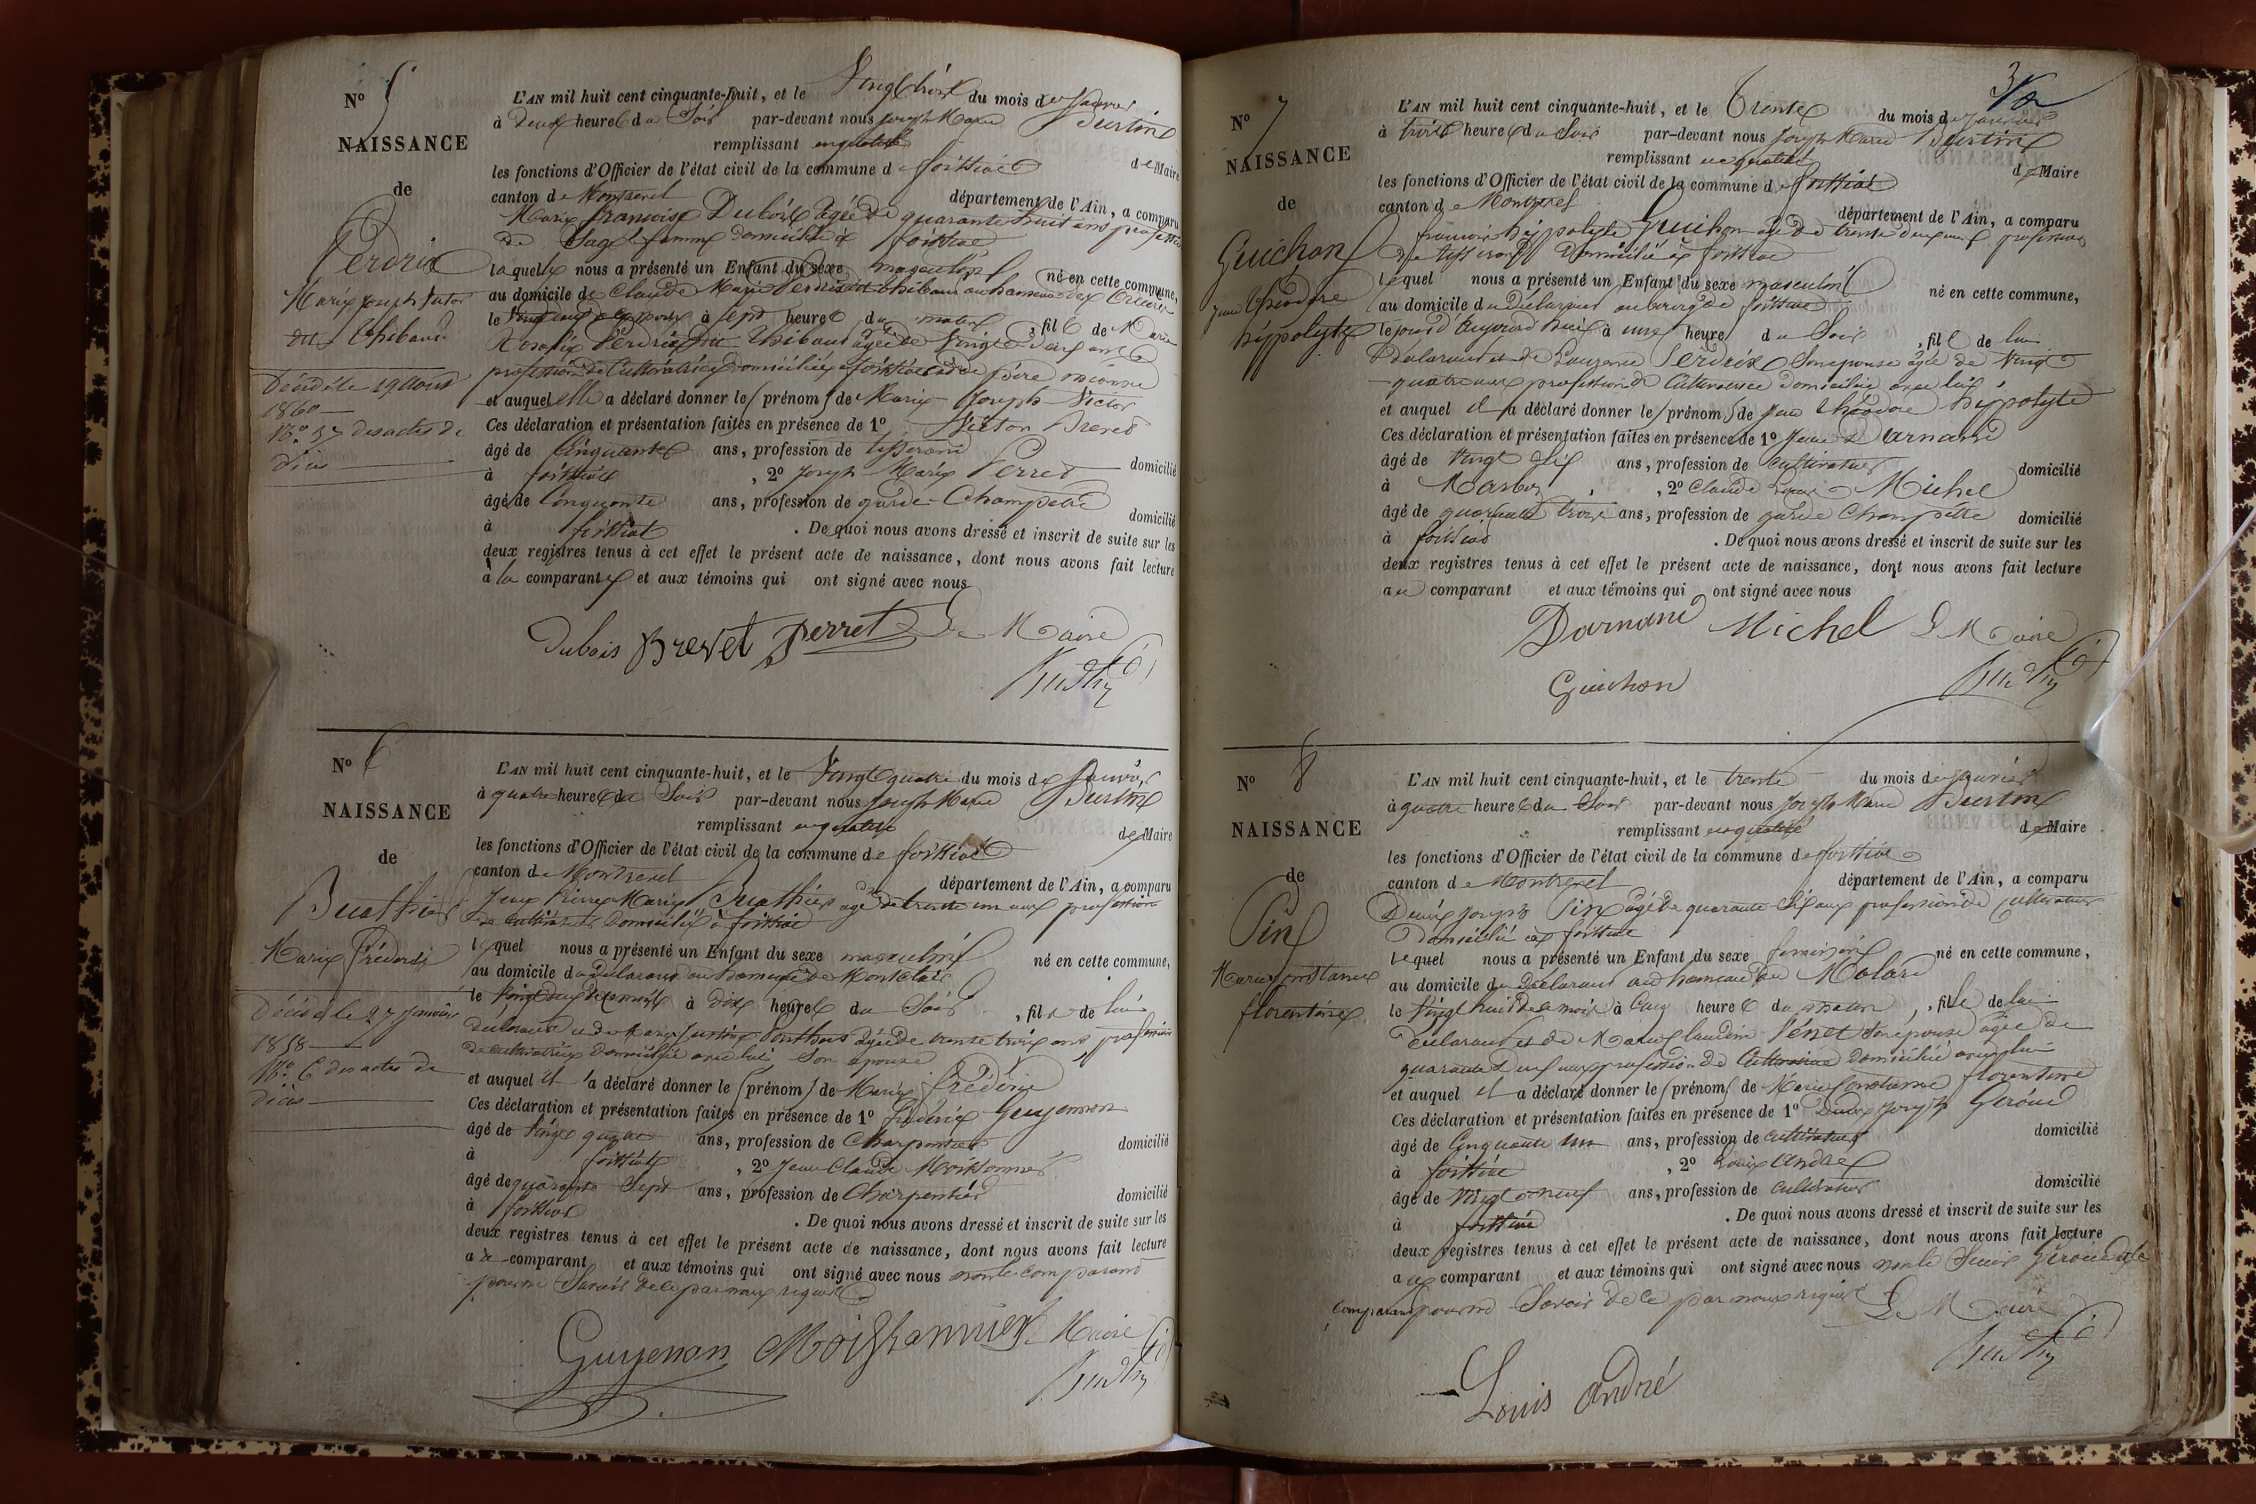 N° 5
NAISSANCE
de
Perdrix
Marie Joseph Victor
dit Thibaud
Décédé le 19 Août
1860
N° 37 des actes de
décès
L'AN mil huit cent cinquante-huit, et le Vingt trois du mois de Janvier
à Deux heures du Soir par-devant nous Joseph Marie Burtin
remplissant en qualité de Maire
les fonctions d'Officier de l'état civil de la commune de foissiat
canton de Montrevel département de l'Ain, a comparu
Marie françoise Dubois agée de quarante huit ans profession
de Sage-femme domiciliée à foissiat
laquelle nous a présenté un Enfant du sexe masculin né en cette commune,
au domicile de Claude Marie Perdrix dit Thibaud au hameau des
le à sept heures du matin, fils de Marie
Rosalie Perdrix dit Thibaud agée de Vingt deux ans
profession de Cultivatrice domiciliée à foissiat et de père inconnu
et auquel elle a déclaré donner le prénom de Marie Joseph Victor
Ces déclaration et présentation faites en présence de 1° Victor Brevet
âgé de Cinquante ans, profession de tisserand domicilié
à foissiat, 2° Joseph Marie Perret
âgé de Cinquante ans, profession de garde-Champêtre domicilié
à foissiat. De quoi nous avons dressé et inscrit de suite sur les
deux registres tenus à cet effet le présent acte de naissance, dont nous avons fait lecture
à la comparante et aux témoins qui ont signé avec nous
Dubois Brevet Perret Le Maire
Burtin
N° 6
NAISSANCE
de
Buathier
Marie Fréderic
Décédé le 27 Janvier
1858
N° 6 des actes de
décès
L'AN mil huit cent cinquante-huit, et le Vingt quatre du mois de Janvier
à quatre heures du Soir par-devant nous Joseph Marie Burtin
remplissant en qualité de Maire
les fonctions d'Officier de l'état civil de la commune de foissiat
canton de Montrevel département de l'Ain, a comparu
Jean Pierre Marie Buathier agé de trente un ans profession
de cultivateur Domicilié à foissiat
lequel nous a présenté un Enfant du sexe masculin né en cette commune,
au domicile du Déclarant au hameau de Montclair
le Vingt deux de ce mois à Dix heures du Soir, fils de lui
déclarant et de Marie Justine Ponthus agée de trente trois ans profession
de cultivatrice Domiciliée avec lui Son épouse
et auquel il a déclaré donner le prénom de Marie Fréderic
Ces déclaration et présentation faites en présence de 1° fréderic Guyennon
âgé de Vingt quatre ans, profession de Charpentier domicilié
à foissiat, 2° Jean Claude Moissonnier
âgé de quarante Sept ans, profession de Charpentier domicilié
à foissiat. De quoi nous avons dressé et inscrit de suite sur les
deux registres tenus à cet effet le présent acte de naissance, dont nous avons fait lecture
au comparant et aux témoins qui ont signé avec nous non le comparant
pour ne Savoir de ce par nous requis
Guyenon Moissonnier Le Maire
Burtin
3
N° 7
NAISSANCE
de
Guichon
Jean Théodore
hippolyte
L'AN mil huit cent cinquante-huit, et le Trente du mois de Janvier
à trois heures du Soir par-devant nous Joseph Marie Burtin
remplissant en qualité de Maire
les fonctions d'Officier de l'état civil de la commune de foissiat
canton de Montrevel département de l'Ain, a comparu
françois hippolyte Guichon agé de trente deux ans profession
de tisserand Domicilié à foissiat
lequel nous a présenté un Enfant du sexe masculin né en cette commune,
au domicile du Déclarant au bourg de foissiat
le jour d'aujourd'hui à une heure du Soir, fils de lui
Déclarant et de Suzanne Perdrix Son épouse agée de Vingt
quatre ans profession de Cultivatrice Domiciliée avec lui
et auquel il a déclaré donner le prénom de Jean théodore hippolyte
Ces déclaration et présentation faites en présence de 1° Jean Darnand
âgé de Vingt Six ans, profession de Cultivateur domicilié
à Marboz, 2° Claude Michel
âgé de quarante trois ans, profession de garde Champêtre domicilié
à foissiat. De quoi nous avons dressé et inscrit de suite sur les
deux registres tenus à cet effet le présent acte de naissance, dont nous avons fait lecture
au comparant et aux témoins qui ont signé avec nous
Darnand Michel Le Maire
Guichon Burtin
N° 8
NAISSANCE
de
Pin
Marie Constance
florentine
L'AN mil huit cent cinquante-huit, et le trente du mois de Janvier
à quatre heures du Soir par-devant nous Joseph Marie Burtin
remplissant en qualité de Maire
les fonctions d'Officier de l'état civil de la commune de foissiat
canton de Montrevel département de l'Ain, a comparu
Denis Joseph Pin agé de quarante Six ans profession de Cultivateur
Domicilié à foissiat
lequel nous a présenté un Enfant du sexe feminin né en cette commune,
au domicile du Déclarant au hameau du Molard
le Vingt huit de ce mois à Cinq heures du matin, fille de lui
Déclarant et de Marie Claudine Venet Son épouse agée de
quarante deux ans profession de Cultivatrice Domiciliée avec lui
et auquel il a déclaré donner le prénom de Marie Constance florentine
Ces déclaration et présentation faites en présence de 1° Denis Joseph Geroud
âgé de Cinquante un ans, profession de cultivateur domicilié
à foissiat, 2° Louis André
âgé de Vingt neuf ans, profession de cultivateur domicilié
à foissiat. De quoi nous avons dressé et inscrit de suite sur les
deux registres tenus à cet effet le présent acte de naissance, dont nous avons fait lecture
au comparant et aux témoins qui ont signé avec nous non le Sieur Geroud et le
comparant pour ne Savoir de ce par nous requis Le Maire
Louis André Burtin